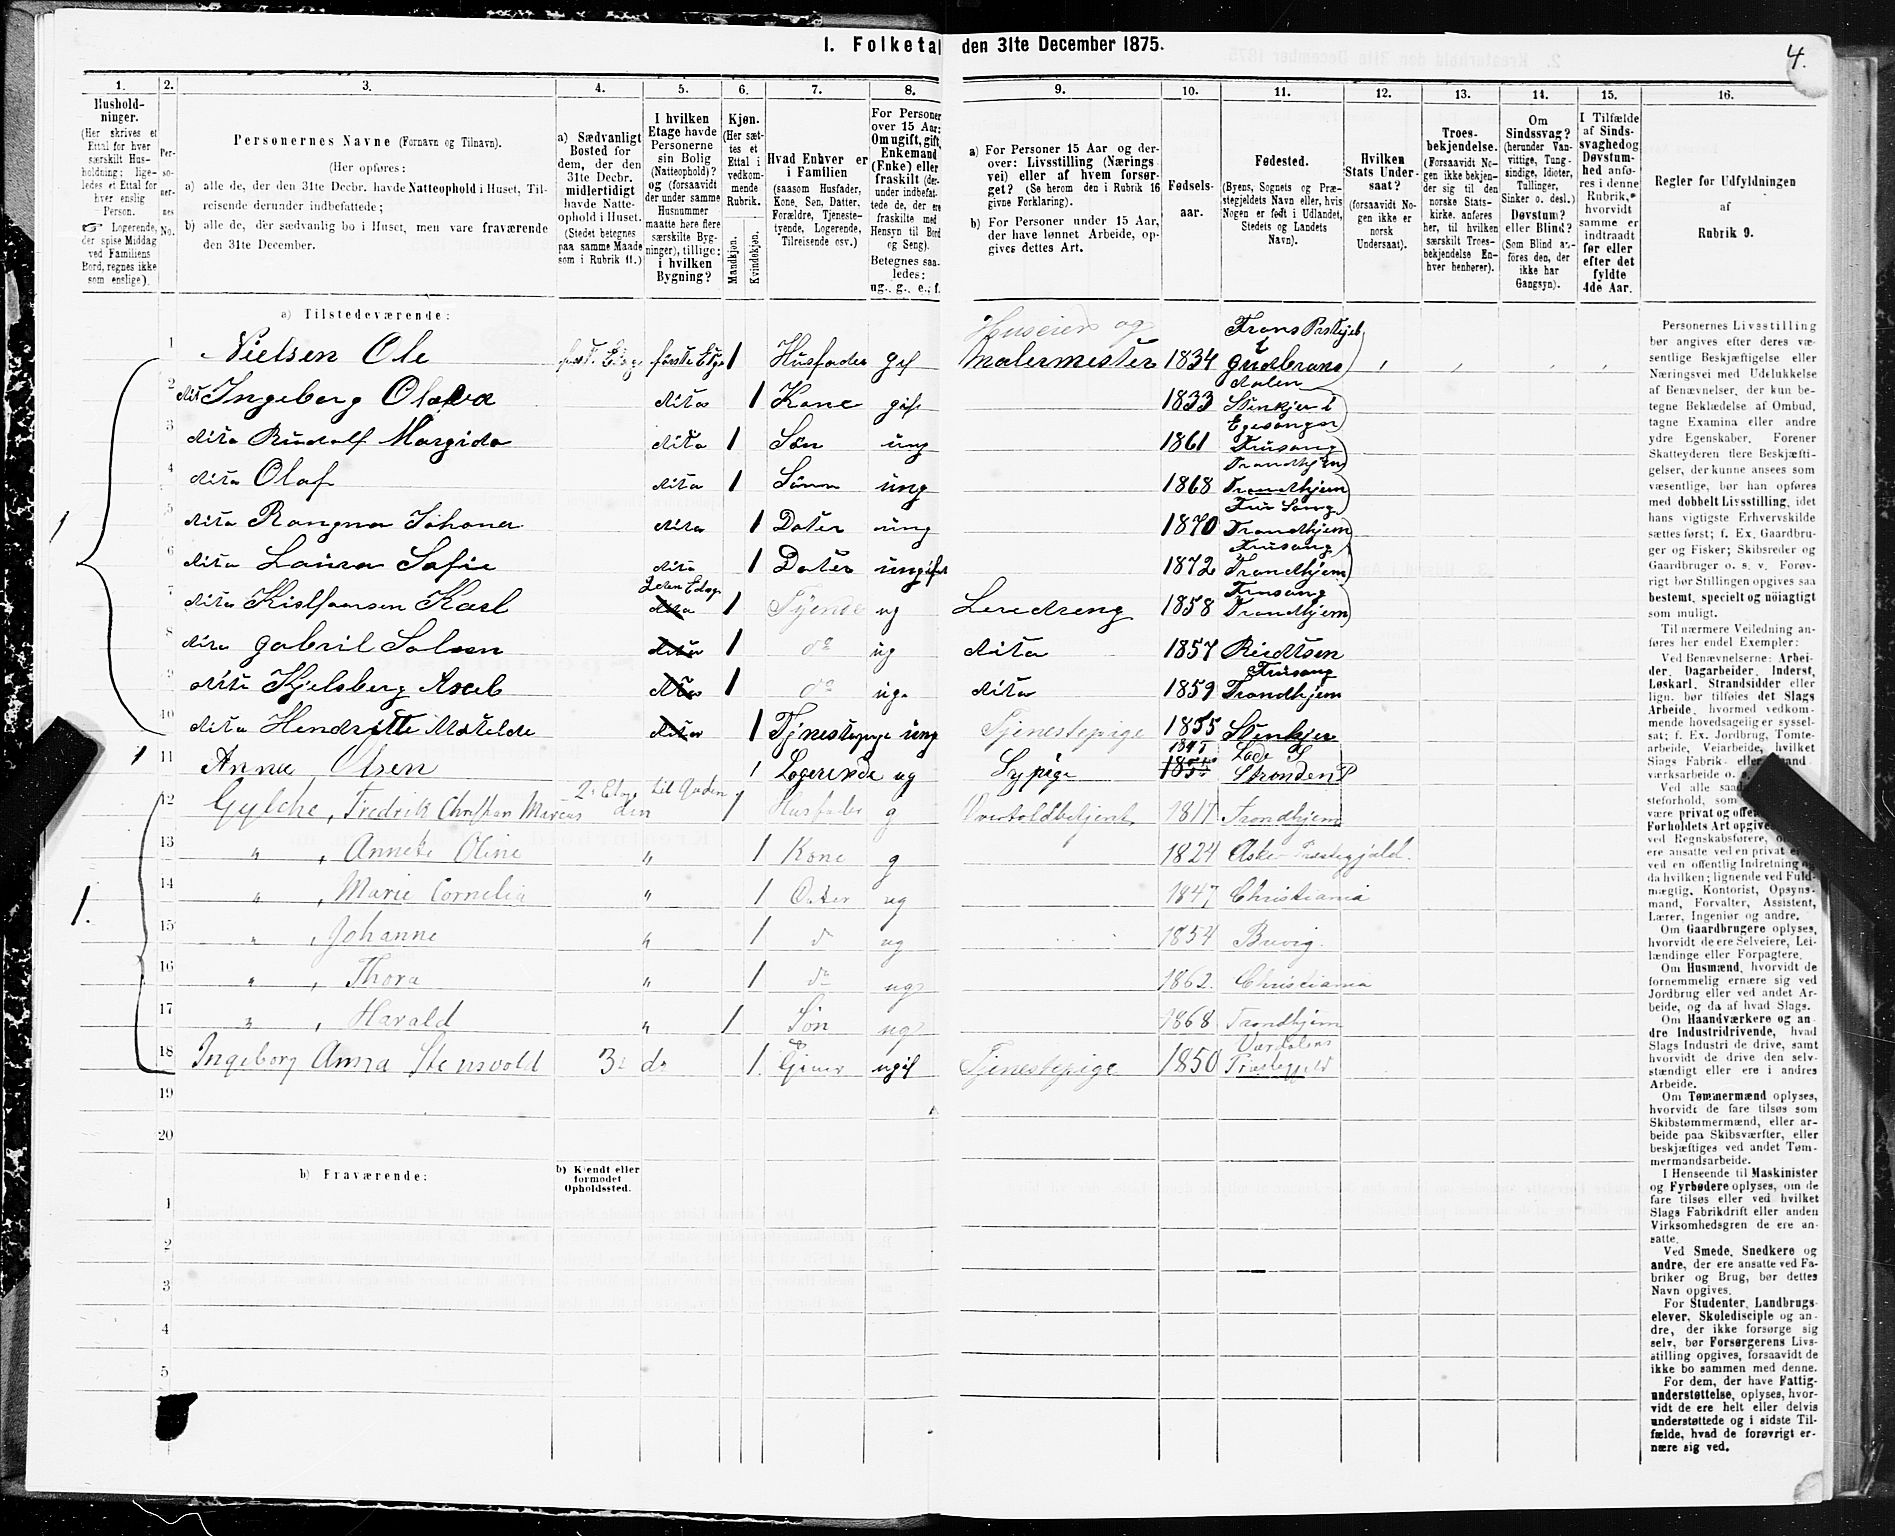 1. Folketal den 31te December 1875.
4.
1. 2. 3. 4. 5. 6. 7. 8. 9. 10. 11. 12. 13. 14. 15. 16.
Hushold-
ninger.
(Her skrives et
Ettal for hver
særskilt Hus-
holdning; lige-
ledes et Ettal for
hver enslig
Person.
☞ Logerende,
der spise Middag
ved Familiens
Bord, regnes ikke
som enslige).
Per-
so-
ner-
nes
No.
Personernes Navne (Fornavn og Tilnavn).
(Her opføres:
a) alle de, der den 31te Decbr. havde Natteophold i Huset, Til-
reisende derunder indbefattede;
b) alle de, der sædvanlig bo i Huset, men vare fraværende
den 31te December.
a) Sædvanligt
Bosted for
dem, der den
31te Decbr.
midlertidigt
havde Natte-
ophold i Huset.
(Stedet betegnes
paa samme Maade
som i Rubrik 11.)
I hvilken
Etage havde
Personerne
sin Bolig
(Natteophold)?
og (forsaavidt
der under samme
Husnummer
maatte høre flere
særskilte Byg-
ninger), tillige:
i hvilken
Bygning?
Kjøn.
(Her sæt-
tes et
Ettal i
vedkom-
mende
Rubrik.
Mandkjøn.
Kvindekjøn.
Hvad Enhver er
i Familien
(saasom Husfader,
Kone, Søn, Datter,
Forældre, Tjeneste-
tyende, Logerende,
Tilreisende osv.)
For Personer
over 15 Aar:
Om ugift, gift,
Enkemand
(Enke) eller
fraskilt (der-
under indbefat-
tede de, der ere
fraskilte med
Hensyn til Bord
og Seng).
Betegnes saa-
ledes:
ug., g., e., f.
a) For Personer 15 Aar og der-
over: Livsstilling (Nærings-
vei) eller af hvem forsør-
get? (Se herom den i Rubrik 16
givne Forklaring).
b) For Personer under 15 Aar,
der have lønnet Arbeide, op-
gives dettes Art.
Fødsels-
aar.
Fødested.
(Byens, Sognets og Præ-
stegjeldets Navn eller, hvis
Nogen er født i Udlandet,
Stedets og Landets
Navn).
Hvilken
Stats Under-
saat?
(forsaavidt No-
gen ikke er
norsk
Undersaat).
Troes-
bekjendelse.
(Forsaavidt No-
gen ikke bekjen-
der sig til den
norske Stats-
kirke, anføres
her, til hvilken
særskilt Troes-
bekjendelse En-
hver henhører).
Om
Sindssvag?
(herunder Van-
vittige, Tung-
sindige, Idioter,
Tullinger,
Sinker o. desl.)
Døvstum?
eller Blind?
(Som Blind an-
føres den, der
ikke har
Gangsyn).
I Tilfælde
af Sinds-
svaghed og
Døvstum-
hed anfø-
res i denne
Rubrik,
hvorvidt
samme er
indtraadt
før eller
efter det
fyldte
4de Aar.
Regler for Udfyldningen
af
Rubrik 9.
a) Tilstedeværende:
Huseier og Trons Prstgjeld
1 Nielsen Ole første Etage 1 Husfader gif Malermester 1834 i Gudbrans
dalen
2 dit Ingeberg Olava dito 1 Kone gift 1833 Stenkjer i
Egesongn
3 dito Rudolf Margido dito 1 Søn ung 1861 Frusong
Trondhjem
4 dito Olaf dito 1 Sønn ung 1868 Trondhjem
Frue Song
5 dito Rangna Johana dito 1 Dater ung 1870 Trondhjem
Frusong
6 dito Laura Sofie dito 1 Dater ungift 1872 Trondhjem
2den Etage Frusong
7 dito Karl dito 1 Tyende ug Leredreng 1858 Trondhjem
8 dito Gabril dito 1 do ug dito 1857
Frusong
9 dito Kjelsberg Axel dito 1 do uge dito 1859 Trondhjem
10 dito Hendritte Matelde dito 1 Tjnestepige ung Tjenestepige 1855 Stenkjer
1847 Lade S
1 11 Anne Olsen 1 Logerende ug Sypige 1855 Stranden P
12 Gylche, Fredrik Christian Marcus 2den Etage til Gaden 1 Husfader g Overtoldbetjent 1817 Trondhjem
13 " , Annete Oline " 1 Kone g 1824 Asker Prestegjæld.
1. 14 " , Marie Cornelia " 1 Dater ug 1847 Christiania
15 " , Johanne " 1 d ug 1854 Brevig.
16 " , Thora " 1 do ug 1862. Christiania
17 " , Harald " 1 Søn ug 1868 Trondhjem
Værdalens
18 Ingeborg Anna Stensvold 3 do 1. ugif Tjenestepige 1850 Præstegjeld
19
20
b) Fraværende:
b) Kjendt eller
formodet
Opholdssted.
1
2
3
4
5
Personernes Livsstilling
bør angives efter deres væ-
sentlige Beskjæftigelse eller
Næringsvei med Udelukkelse
af Benævnelser, der kun be-
tegne Beklædelse af Ombud,
tagne Examina eller andre
ydre Egenskaber. Forener
Skatteyderen flere Beskjæfti-
gelser, der kunne ansees som
væsentlige, bør han opføres
med dobbelt Livsstilling, idet
hans vigtigste Erhvervskilde
sættes først; f. Ex. Gaardbru-
ger og Fisker; Skibsreder og
Gaardbruger o. s. v. Forøv-
rigt bør Stillingen opgives saa
bestemt, specielt og nøiagtigt
som muligt.
Til nærmere Veiledning an-
føres her endel Exempler:
Ved Benævnelserne: Arbei-
der, Dagarbeider, Inderst,
Løskarl, Strandsidder eller
lign. bør tilføies det Slags
Arbeide, hvormed vedkom-
mende hovedsagelig er syssel-
sat; f. Ex. Jordbrug, Tomte-
arbeide, Veiarbeide, hvilket
Slags Fabrik- eller Haand-
værksarbeide o.
Ved alle
steforhold, som
være privat og
Forholdets Art
ved Regnskabsførere,
ere ansatte ved en privat
ved en offentlig Indretning og
da hvilken; lignende ved Fuld-
mægtig, Kontorist, Opsyns-
mand, Forvalter, Assistent,
Lærer, Ingeniør og andre.
Om Gaardbrugere oplyses,
hvorvidt de ere Selveiere, Lei-
lændinge eller Forpagtere.
Om Husmænd, hvorvidt de
fornemmelig ernære sig ved
Jordbrug eller ved andet Ar-
beide, og da af hvad Slags.
Om Haandværkere og an-
dre Industridrivende, hvad
Slags Industri de drive, samt
hvorvidt de drive den selv-
stændigt eller ere i andres
Arbeide.
Om Tømmermænd oplyses,
hvorvidt de fare tilsøs som
Skibstømmermænd, eller ar-
beide paa Skibsværfter, eller
beskjæftiges ved andet Tøm-
mermandsarbeide.
I Henseende til Maskinister
og Fyrbødere oplyses, om de
fare tilsøs eller ved hvilket
Slags Fabrikdrift eller anden
Virksomhedsgren de ere an-
satte.
Ved Smede, Snedkere og
andre, der ere ansatte ved Fa-
briker og Brug, bør dettes
Navn opgives.
For Studenter, Landbrugs-
elever, Skoledisciple og an-
dre, der ikke forsørge sig
selv, bør Forsørgerens Livs-
stilling opgives, forsaavidt de
ikke bo sammen med denne.
For dem, der have Fattig-
understøttelse, oplyses, hvor-
vidt de ere helt eller delvis
understøttede og i sidste Til-
fælde, hvad de forøvrigt er-
nære sig ved.